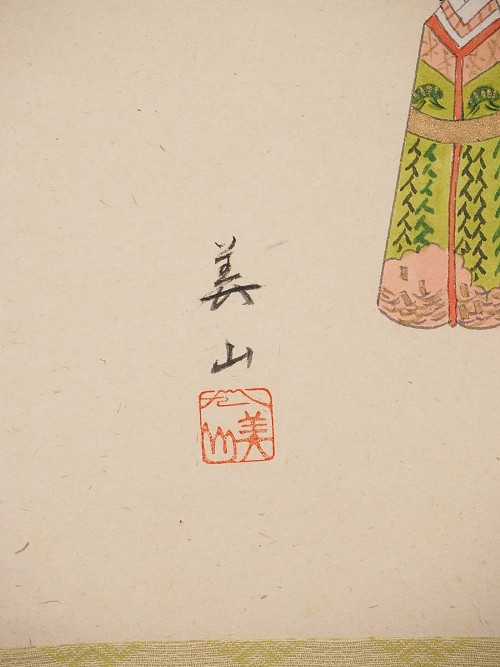 美
山
美山